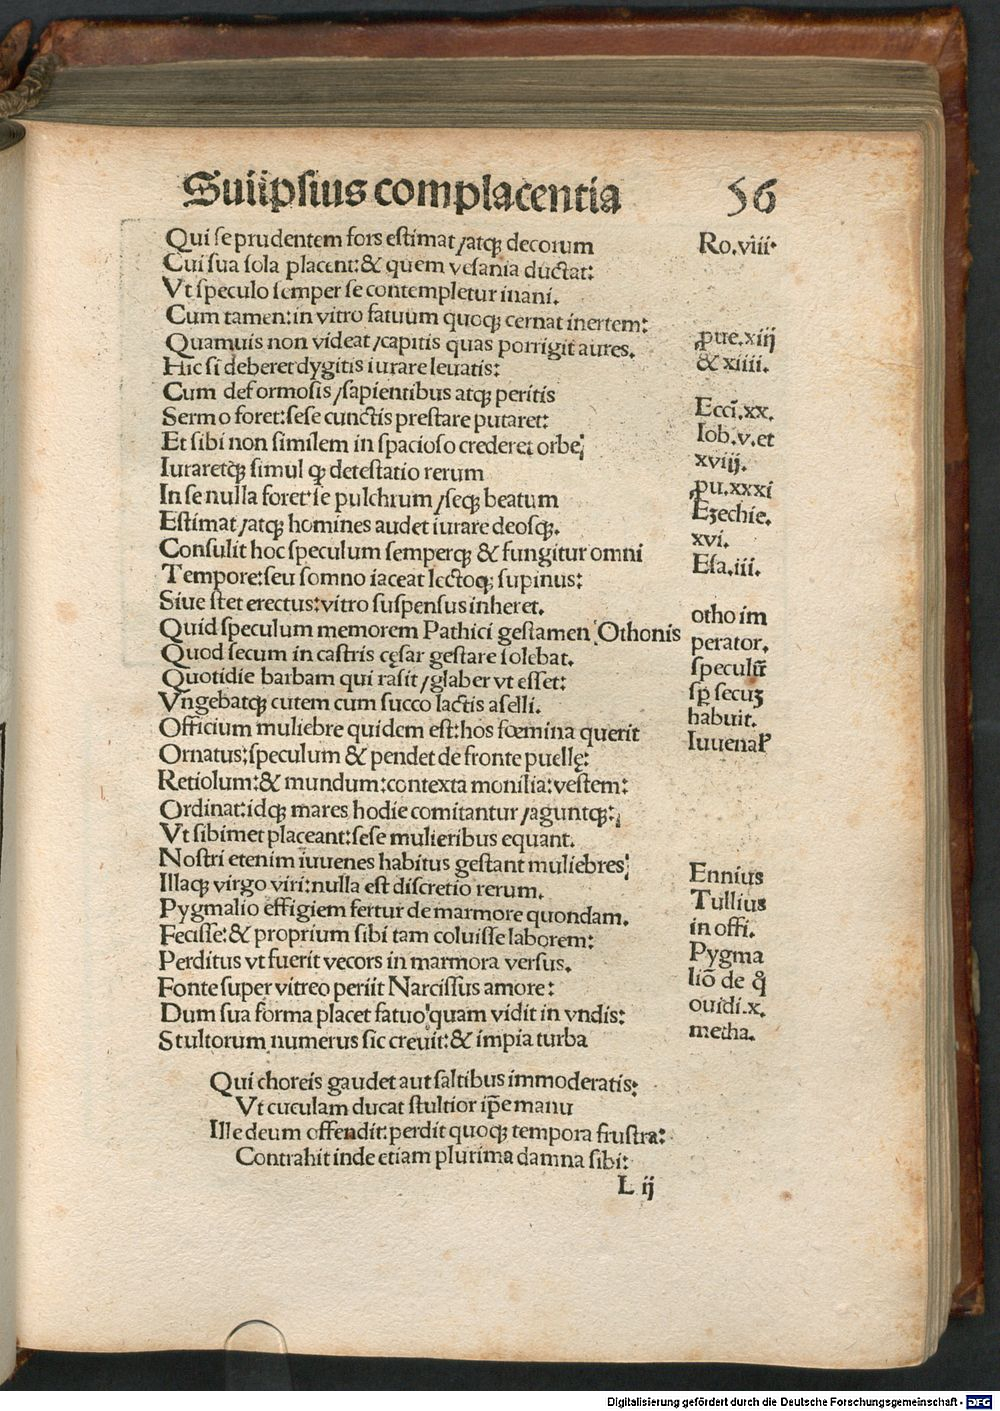 Suiipsius complacentia 56
Qui se prudentem fors estimat/atq; decorum
Cui sua sola placent:& quem vesania ductat:
Vt speculo semper se contempletur inani.
Cum tamen:in vitro fatuum quoq; cernat inertem:
Quamuis non videat/capitis quas porrigit aures.
Hic si deberet dygitis iurare leuatis:
Cum de formosis/sapientibus atq; peritis
Sermo foret:sese cunctis prestare putaret:
Et sibi non similem in spacioso crederet orbe:
Iuraretq; simul ꝙ detestatio rerum
In se nulla foret se pulchrum/seq; beatum
Estimat/atq; homines audet iurare deosq;.
Consulit hoc speculum semperq; & fungitur omni
Tempore:seu somno iaceat lectoq; supinus:
Siue stet erectus:vitro suspensus inheret.
Quid speculum memorem Pathici gestamen Othonis
Quod secum in castris cęsar gestare solebat.
Quotidie barbam qui rasit/glaber vt esset:
Vngebatq; cutem cum succo lactis aselli.
Officium muliebre quidem est:hos fœmina querit
Ornatus:speculum & pendet de fronte puellę:
Retiolum:& mundum:contexta monilia:vestem:
Ordinat:idq; mares hodie comitantur/aguntq;:
Vt sibimet placeant:sese mulieribus equant.
Nostri etenim iuuenes habitus gestant muliebres:
Illaq; virgo viri:nulla est discretio rerum.
Pygmalio effigiem fertur de marmore quondam.
Fecisse:& proprium sibi tam coluisse laborem:
Perditus vt fuerit vecors in marmora versus.
Fonte super vitreo periit Narcissus amore:
Dum sua forma placet fatuo:quam vidit in vndis:
Stultorum numerus sic creuit:& impia turba
Ro.viii.
ꝓue.xiij
& xiiii.
Ecci.xx.
Iob.v.et
xviij.
ꝓu.xxxi
Ezechie.
xvi.
Esa.iii.
otho im
perator.
speculū
sꝑ secuꝫ
habuit.
Iuuenał
Ennius
Tullius
in offi.
Pygma
liō de q̊
ouidi.x.
metha.
Qui choreis gaudet aut saltibus immoderatis:
Vt cuculam ducat stultior ip̄e manu
Ille deum offendit:perdit quoq; tempora frustra:
Contrahit inde etiam plurima damna sibi:
L ij
Digitalisierung gefördert durch die Deutsche Forschungsgemeinschaft - DFG